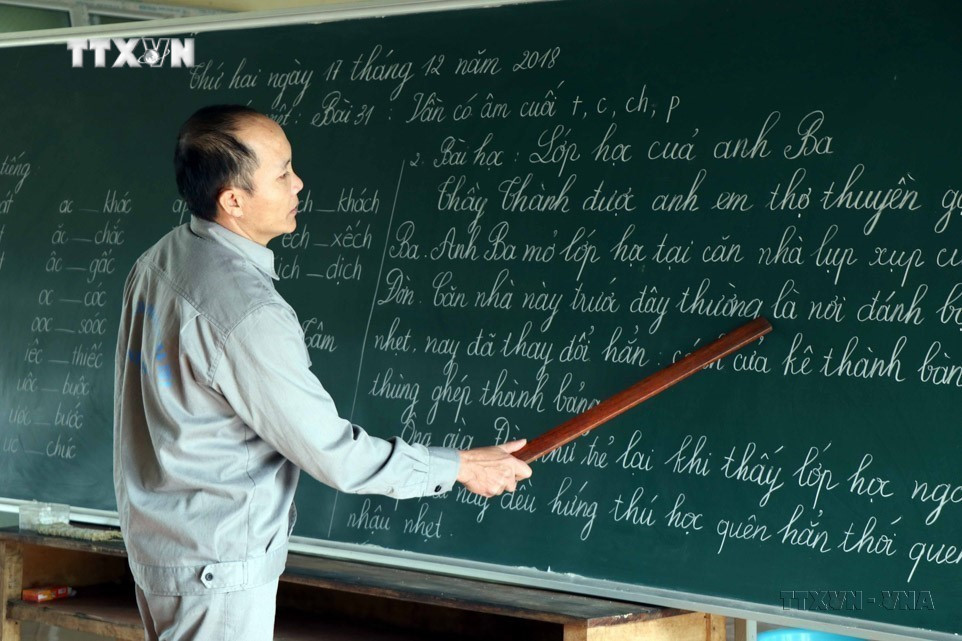 TTXVN
Thứ hai ngày 17 tháng 12 năm 2018
Bài 31 : Vần có âm cuối t, c, ch, p
tiếng
ac — khác
ăc — chắc
âc — gấc
oc — cóc
ooc — soóc
iêc — thiếc
uôc — buộc
ươc — bước
uc — chúc
ch — khách
êch — xếch
ich — dịch
2. Bài học : Lớp học cuả anh Ba
Thầy Thành được anh em thợ thuyền
Ba. Anh Ba mở lớp học tại căn nhà lụp xụp
Dòn. Căn nhà này trước đây thường là nơi đánh
nhẹt, nay đã thay đổi hẳn. cửa kê thành
thùng ghép thành bảng
Ông già thú trẻ lại khi thấy lớp học
này đều hứng thú học quên hẳn thói
nhậu nhẹt.
TTXVN - VNA